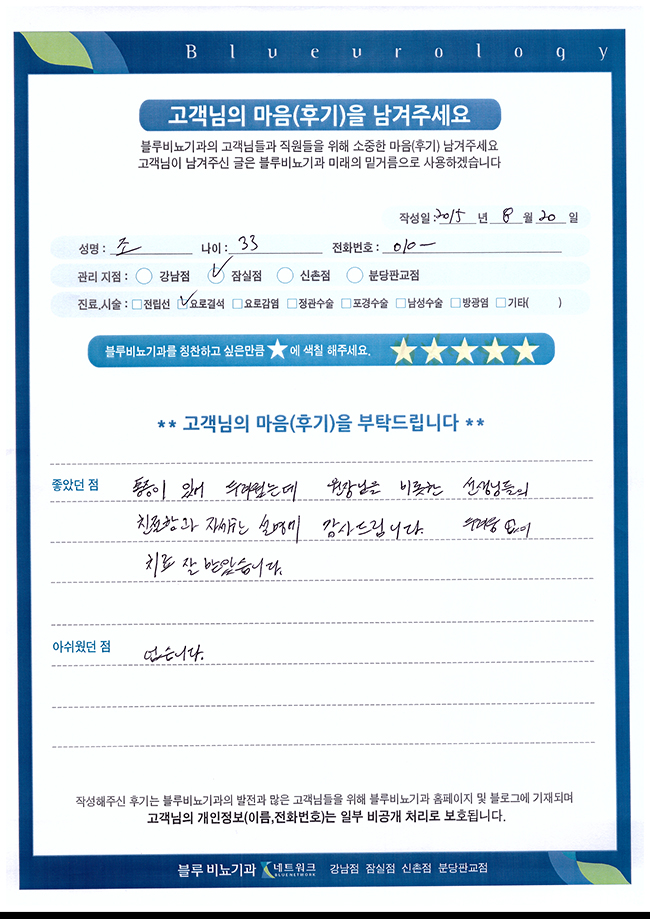 Blueurology
고객님의 마음(후기)을 남겨주세요
블루비뇨기과의 고객님들과 직원들을 위해 소중한 마음(후기) 남겨주세요
고객님이 남겨주신 글은 블루비뇨기과 미래의 밑거름으로 사용하겠습니다
작성일 : 2015 년 8 월 20 일
성명 : 조 나이 : 33 전화번호 : 010-
관리 지점 : 강남점 잠실점 신촌점 분당판교점
진료,시술 : 전립선 요로결석 요로감염 정관수술 포경수술 남성수술 방광염 기타( )
블루비뇨기과를 칭찬하고 싶은만큼 ★에 색칠 해주세요. ★★★★★
** 고객님의 마음(후기)을 부탁드립니다 **
좋았던 점 통증이 있어 두려웠는데 원장님을 비롯한 선생님들의
친절함과 자세한 설명에 감사드립니다. 두려움 없이
치료 잘 받았습니다.
아쉬웠던 점 없습니다.
작성해주신 후기는 블루비뇨기과의 발전과 많은 고객님들을 위해 블루비뇨기과 홈페이지 및 블로그에 기재되며
고객님의 개인정보(이름,전화번호)는 일부 비공개 처리로 보호됩니다.
블루 비뇨기과 네트워크 BLUENETWORK 강남점 잠실점 신촌점 분당판교점